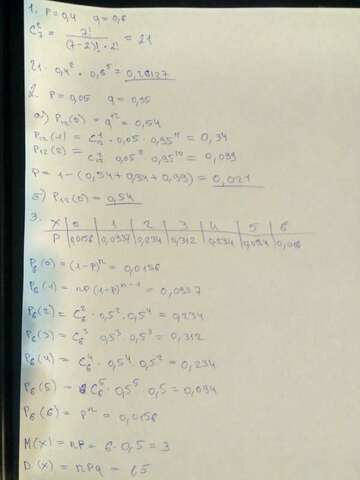 1. P=0,4 q=0,6
C₇² = 7! / (7-2)! · 2! = 21
21 · 0,4² · 0,6⁵ = 0,26127
2. P=0,05 q=0,95
а) P₁₂(0) = q¹² = 0,54
P₁₂(1) = C¹₁₂ · 0,05 · 0,95¹¹ = 0,34
P₁₂(2) = C²₁₂ 0,05² 0,95¹⁰ = 0,099
P = 1-(0,54+0,34+0,99) = 0,021
б) P₁₂(0) = 0,54
3.
X 0 1 2 3 4 5 6
P 0,0156 0,0937 0,234 0,312 0,234 0,094 0,016
P₆(0) = (1-P)ⁿ = 0,0156
P₆(1) = nP(1-P)ⁿ⁻¹ = 0,0937
P₆(2) = C₆² · 0,5² · 0,5⁴ = 0,234
P₆(3) = C₆³ 0,5³ · 0,5³ = 0,312
P₆(4) = C₆⁴ · 0,5⁴ 0,5² = 0,234
P₆(5) = C₆⁵ · 0,5⁵ · 0,5 = 0,094
P₆(6) = Pⁿ = 0,0156
M(X) = nP = 6 · 0,5 = 3
D(X) = nPq = 1,5